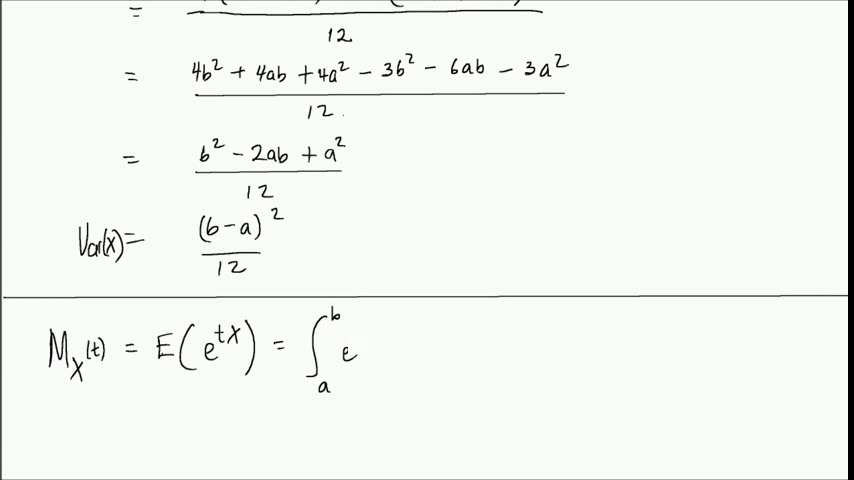 =
12
= 4b² + 4ab + 4a² − 3b² − 6ab − 3a²
12
= b² − 2ab + a²
12
Var(X) = (b − a)²
12
M_X(t) = E(e^{tX}) = ∫_a^b e